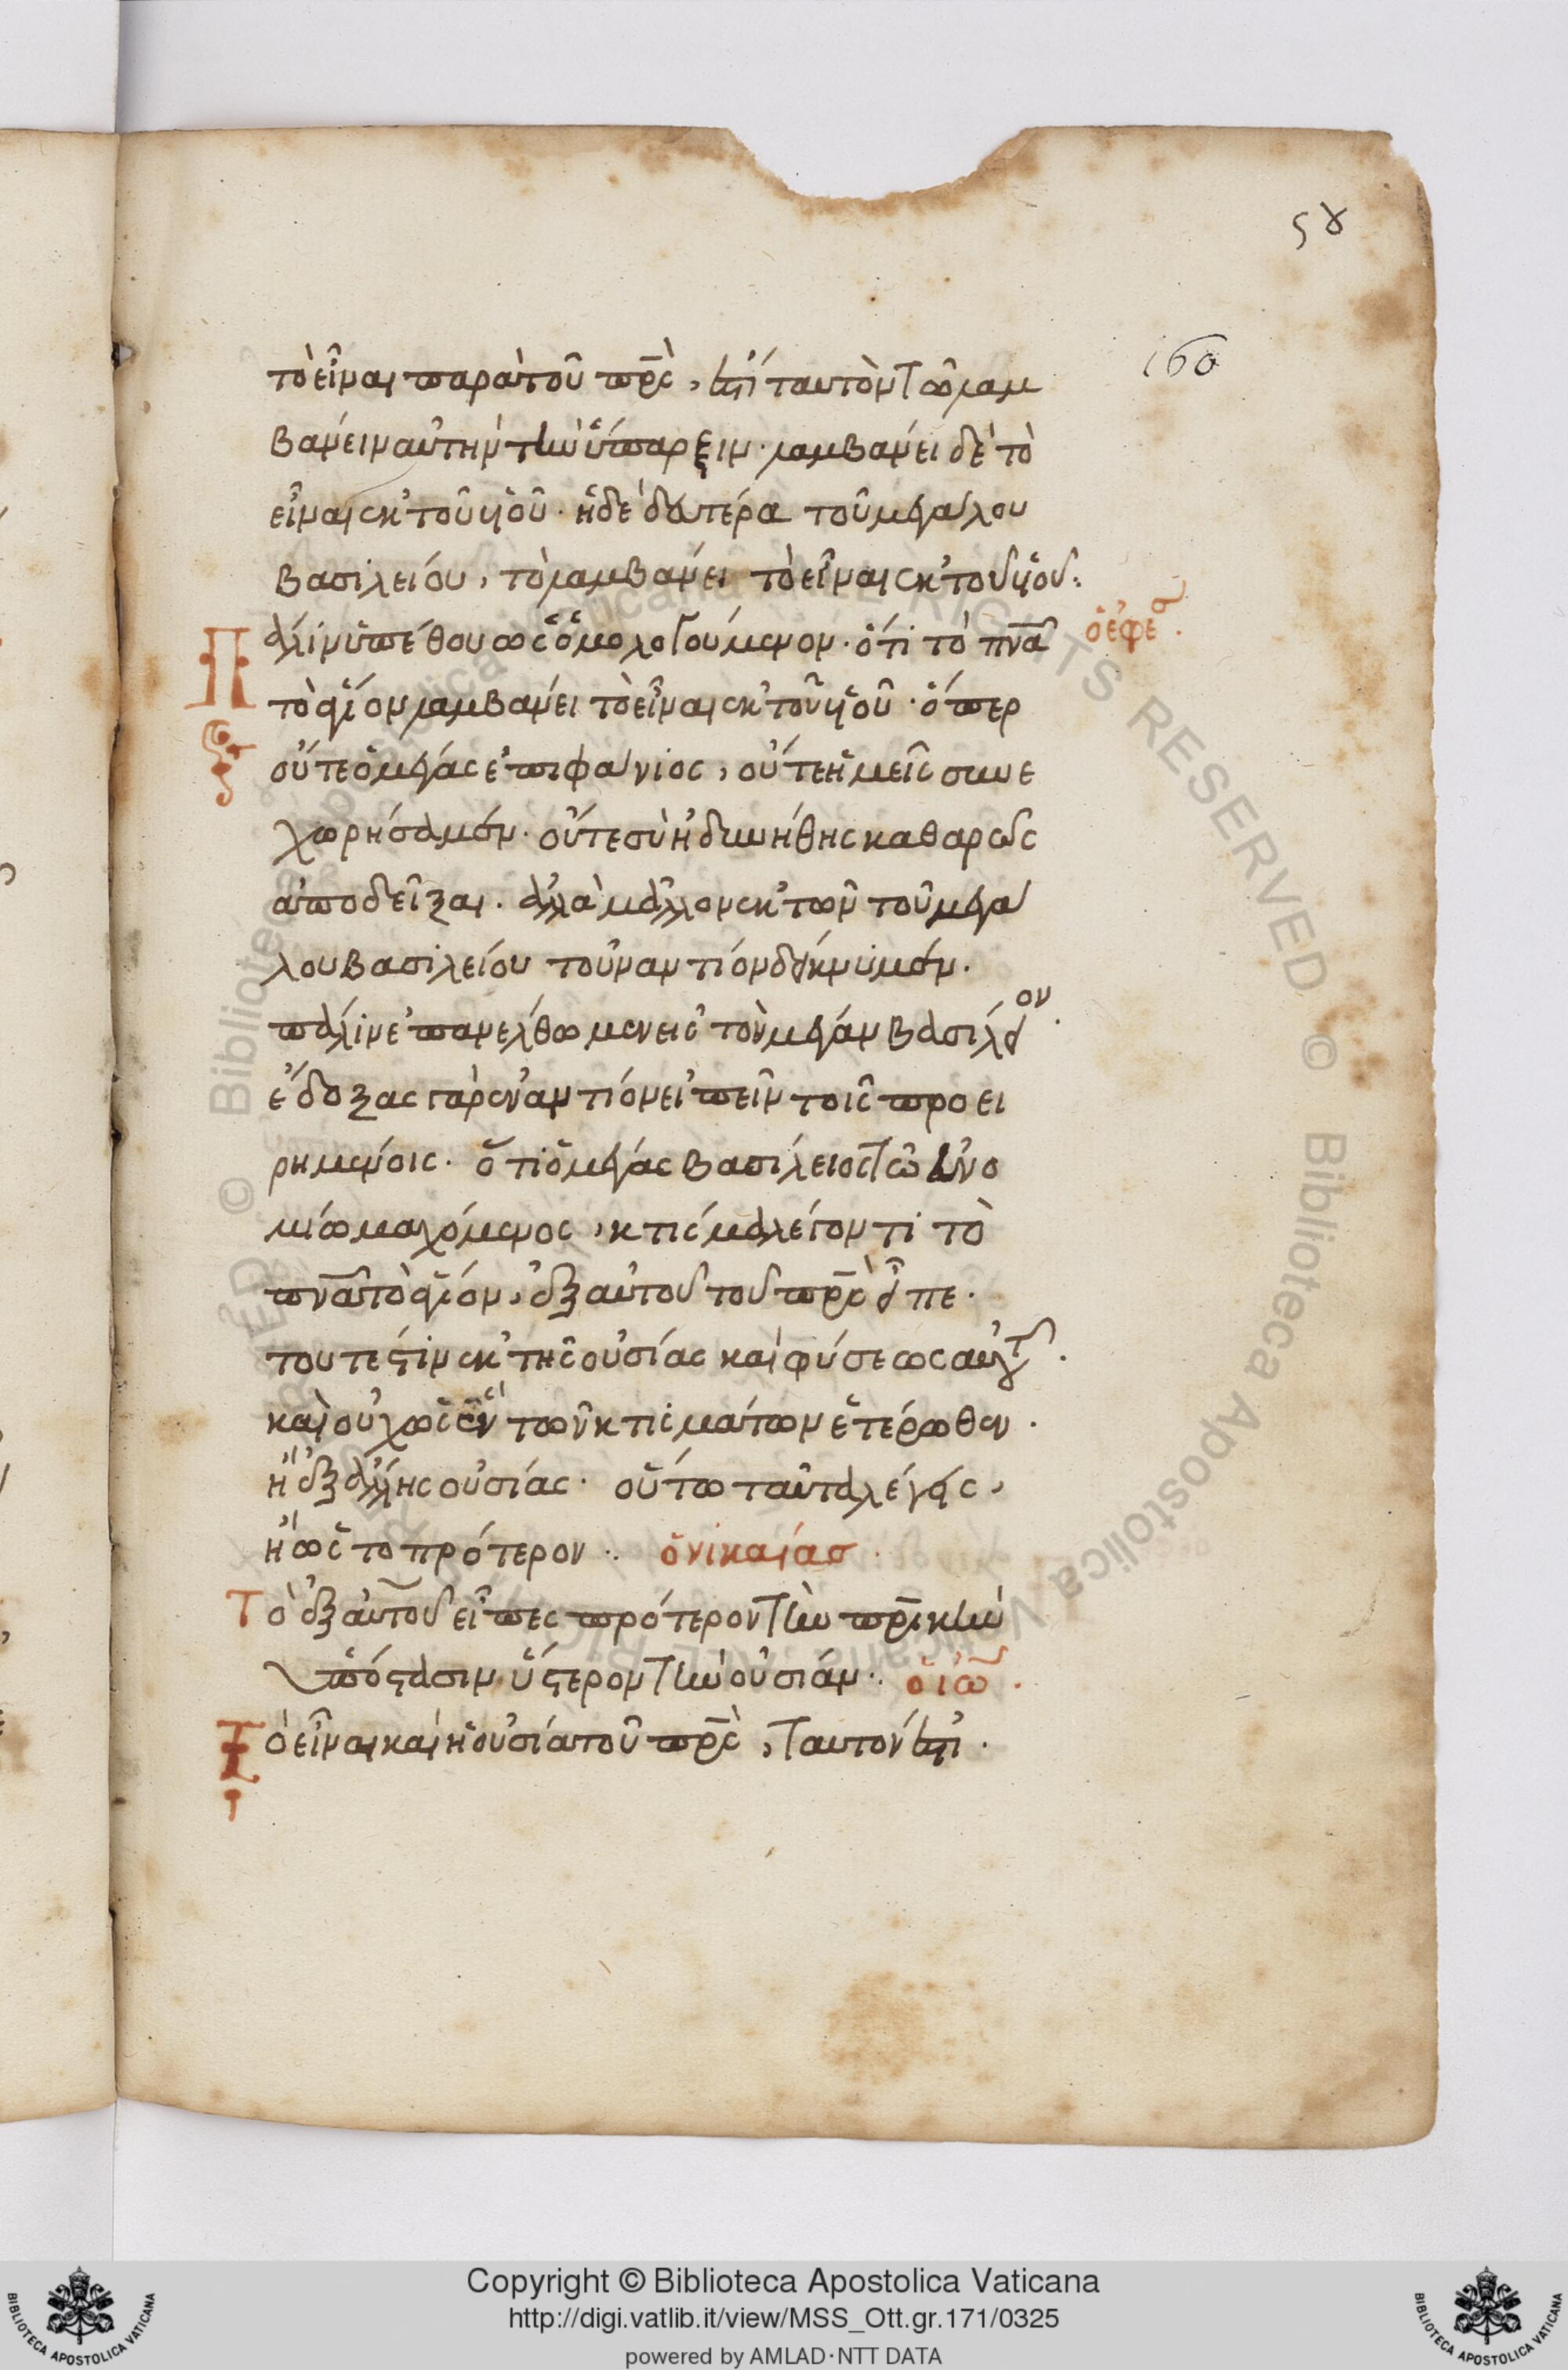 ϛγ
160
τὸ εἶναι παρὰ τοῦ πρ̅ς̀, ἐστὶ ταυτὸν τῶ λαμ
βάνειν αὐτὴν τὴν ὕπαρξιν· λαμβάνει δὲ τὸ
εἶναι ἐκ τοῦ υἱοῦ· ἡ δὲ δευτέρα τοῦ μεγάλου
βασιλείου, τὸ λαμβάνει τὸ εἶναι ἐκ τοῦ υἱοῦ:
ὁ ἐφέ.
Πάλιν ὑπέθου ὡς ὁμολογούμενον· ὅτι τὸ πν̅α
τὸ ἅγιον λαμβάνει τὸ εἶναι ἐκ τοῦ υἱοῦ· ὅπερ
οὔτε ὁ μέγας ἐπιφάνιος, οὔτε ἡμεῖς συνε
χωρήσαμεν· οὔτε σὺ ἠδυνήθης καθαρῶς
ἀποδεῖξαι. ἀλλὰ μᾶλλον ἐκ τῶν τοῦ μεγά
λου βασιλείου τοὐναντίον ἐδείκνυμεν.
πάλιν ἐπανέλθωμεν εἰς τὸν μέγαν βασίλειον.
ἔδοξας γὰρ ἐναντίον εἰπεῖν τοῖς προει
ρημένοις· ὅτι ὁ μέγας βασίλειος τῶ εὐνο
μίω μαχόμενος, κτίσμα λέγοντι τὸ
πν̅α τὸ ἅγιον, ἐξ αὐτοῦ τοῦ πρ̅ς̀ εἶπε.
τουτέστιν ἐκ τῆς οὐσίας καὶ φύσεως αὐτοῦ.
καὶ οὐχ ὡς ἓν τῶν κτισμάτων ἑτέρωθεν.
ἢ ἐξ ἄλλης οὐσίας· οὕτω ταῦτα λέγεις,
ἢ ὡς τὸ πρότερον·. ὁ νικαίας·
Τὸ ἐξ αὐτοῦ εἶπες πρότερον τὴν πρ̅ικὴν
ὑπόστασιν· ὕστερον τὴν οὐσίαν·. ὁ ἰω.
Τὸ εἶναι καὶ ἡ οὐσία τοῦ πρ̅ς̀, ταυτόν ἐστι.
Copyright © Biblioteca Apostolica Vaticana
http://digi.vatlib.it/view/MSS_Ott.gr.171/0325
powered by AMLAD·NTT DATA